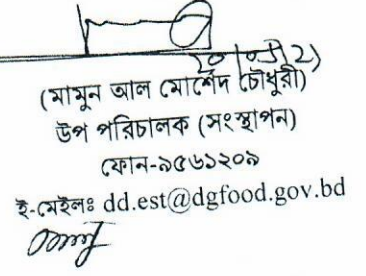 (মামুন আল মোর্শেদ চৌধুরী)
উপ পরিচালক (সংস্থাপন)
ফোন-৯৫৬১২০৯
ই-মেইলঃ dd.est@dgfood.gov.bd